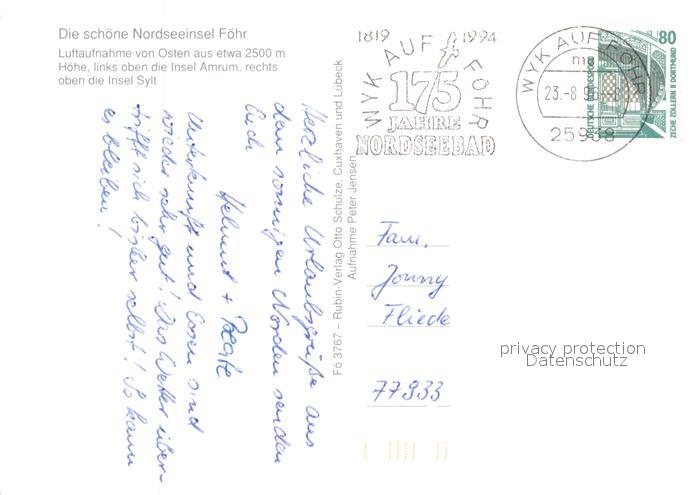 Die schöne Nordseeinsel Föhr
Luftaufnahme von Osten aus etwa 2500 m
Höhe, links oben die Insel Amrum, rechts
oben die Insel Sylt
Herzliche Urlaubsgrüße aus
dem sonnigen Norden senden
Euch
Helmut + Beate
Unterkunft und Essen sind
wieder sehr gut! Das Wetter über-
trifft sich bisher selbst! So kann
es bleiben!
Fö 3767 – Rubin-Verlag Otto Schulze, Cuxhaven und Lübeck
Aufnahme Peter Jensen
1819 1994
WYK AUF FÖHR
175
JAHRE
NORDSEEBAD
WYK AUF FÖHR
ma
23.-8
25938
80
DEUTSCHE BUNDESPOST
ZECHE ZOLLERN II DORTMUND
Fam.
Jonny
Fliede
77933
privacy protection
Datenschutz